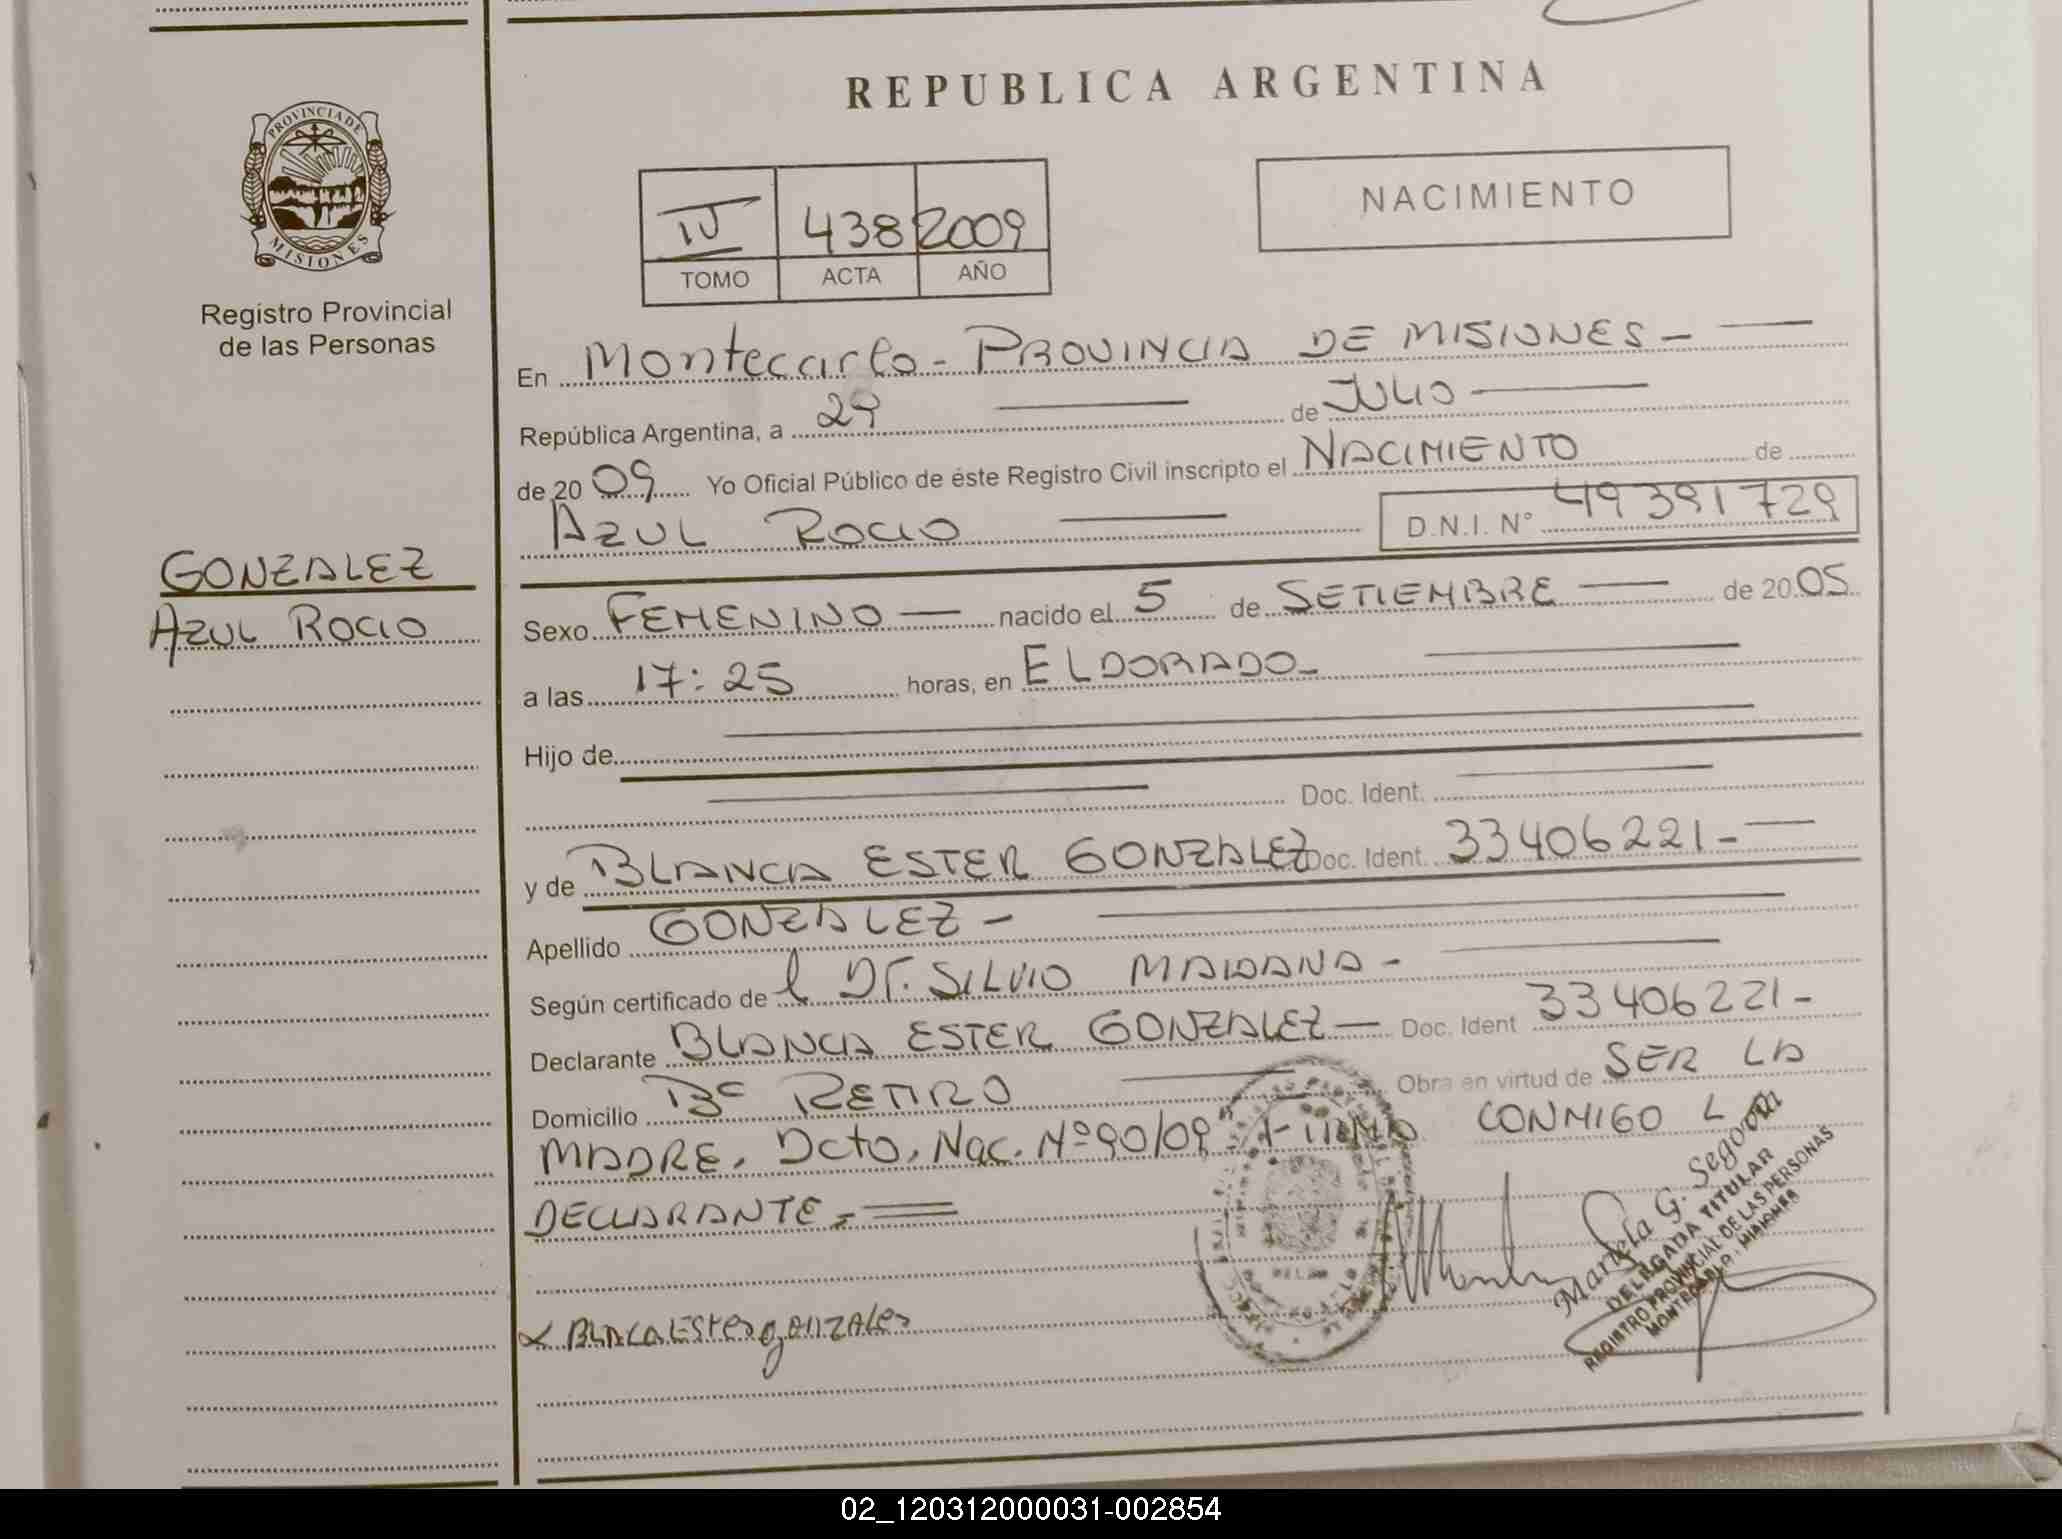 REPUBLICA ARGENTINA
PROVINCIA DE
MISIONES
Registro Provincial
de las Personas
NACIMIENTO
IV 438 2009
TOMO ACTA AÑO
En Montecarlo - PROVINCIA DE MISIONES -
República Argentina, a 29 de JULIO
de 20 09 Yo Oficial Público de éste Registro Civil inscripto el NACIMIENTO de
AZUL ROCIO D.N.I. N° 49391729
GONZALEZ
AZUL ROCIO
Sexo FEMENINO nacido el 5 de SETIEMBRE de 20 05
a las 17:25 horas, en ELDORADO -
Hijo de
Doc. Ident.
y de BLANCA ESTER GONZALEZ Doc. Ident. 33406221 -
Apellido GONZALEZ -
Según certificado de l Dr. SILVIO MAIDANA -
Declarante BLANCA ESTER GONZALEZ - Doc. Ident 33406221 -
Domicilio B° RETIRO Obra en virtud de SER LA
MADRE. Dcto. Nac. Nº 90/09 - FIRMA CONMIGO LA
DECLARANTE. =
Mariela G. Segovia
DELEGADA TITULAR
REGISTRO PROVINCIAL DE LAS PERSONAS
MONTECARLO - MISIONES
x BLACA ESTER gONZALES
02_120312000031-002854